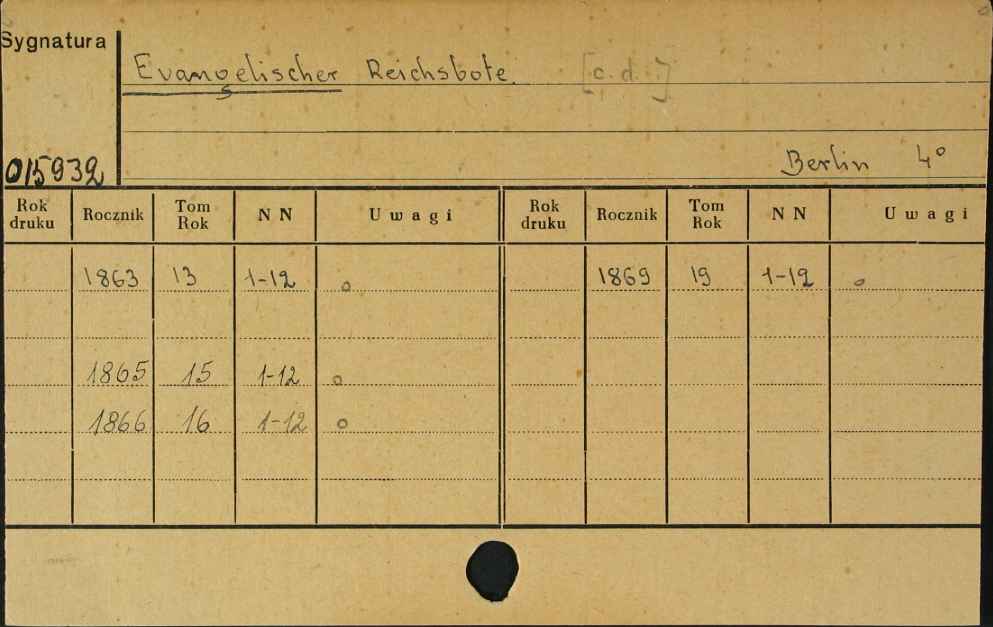 Sygnatura
Evangelischer Reichsbote [c.d.]
015932
Berlin 4°
Rok druku Rocznik Tom Rok NN Uwagi Rok druku Rocznik Tom Rok NN Uwagi
1863 13 1-12 o 1869 19 1-12 o
1865 15 1-12 o
1866 16 1-12 o